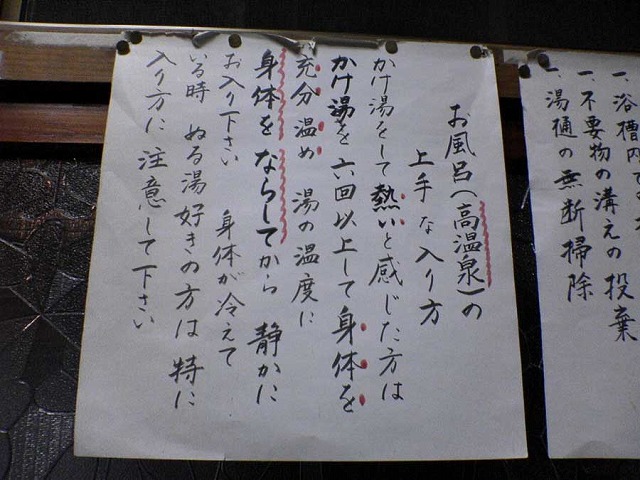 一、浴槽内での
一、不要物の溝えの投棄
一、湯樋の無断掃除
お風呂(高温泉)の
上手な入り方
かけ湯をして熱いと感じた方は
かけ湯を六回以上して身体を
充分温め 湯の温度に
身体をならしてから 静かに
お入り下さい 身体が冷えて
いる時 ぬる湯好きの方は 特に
入り方に 注意して下さい